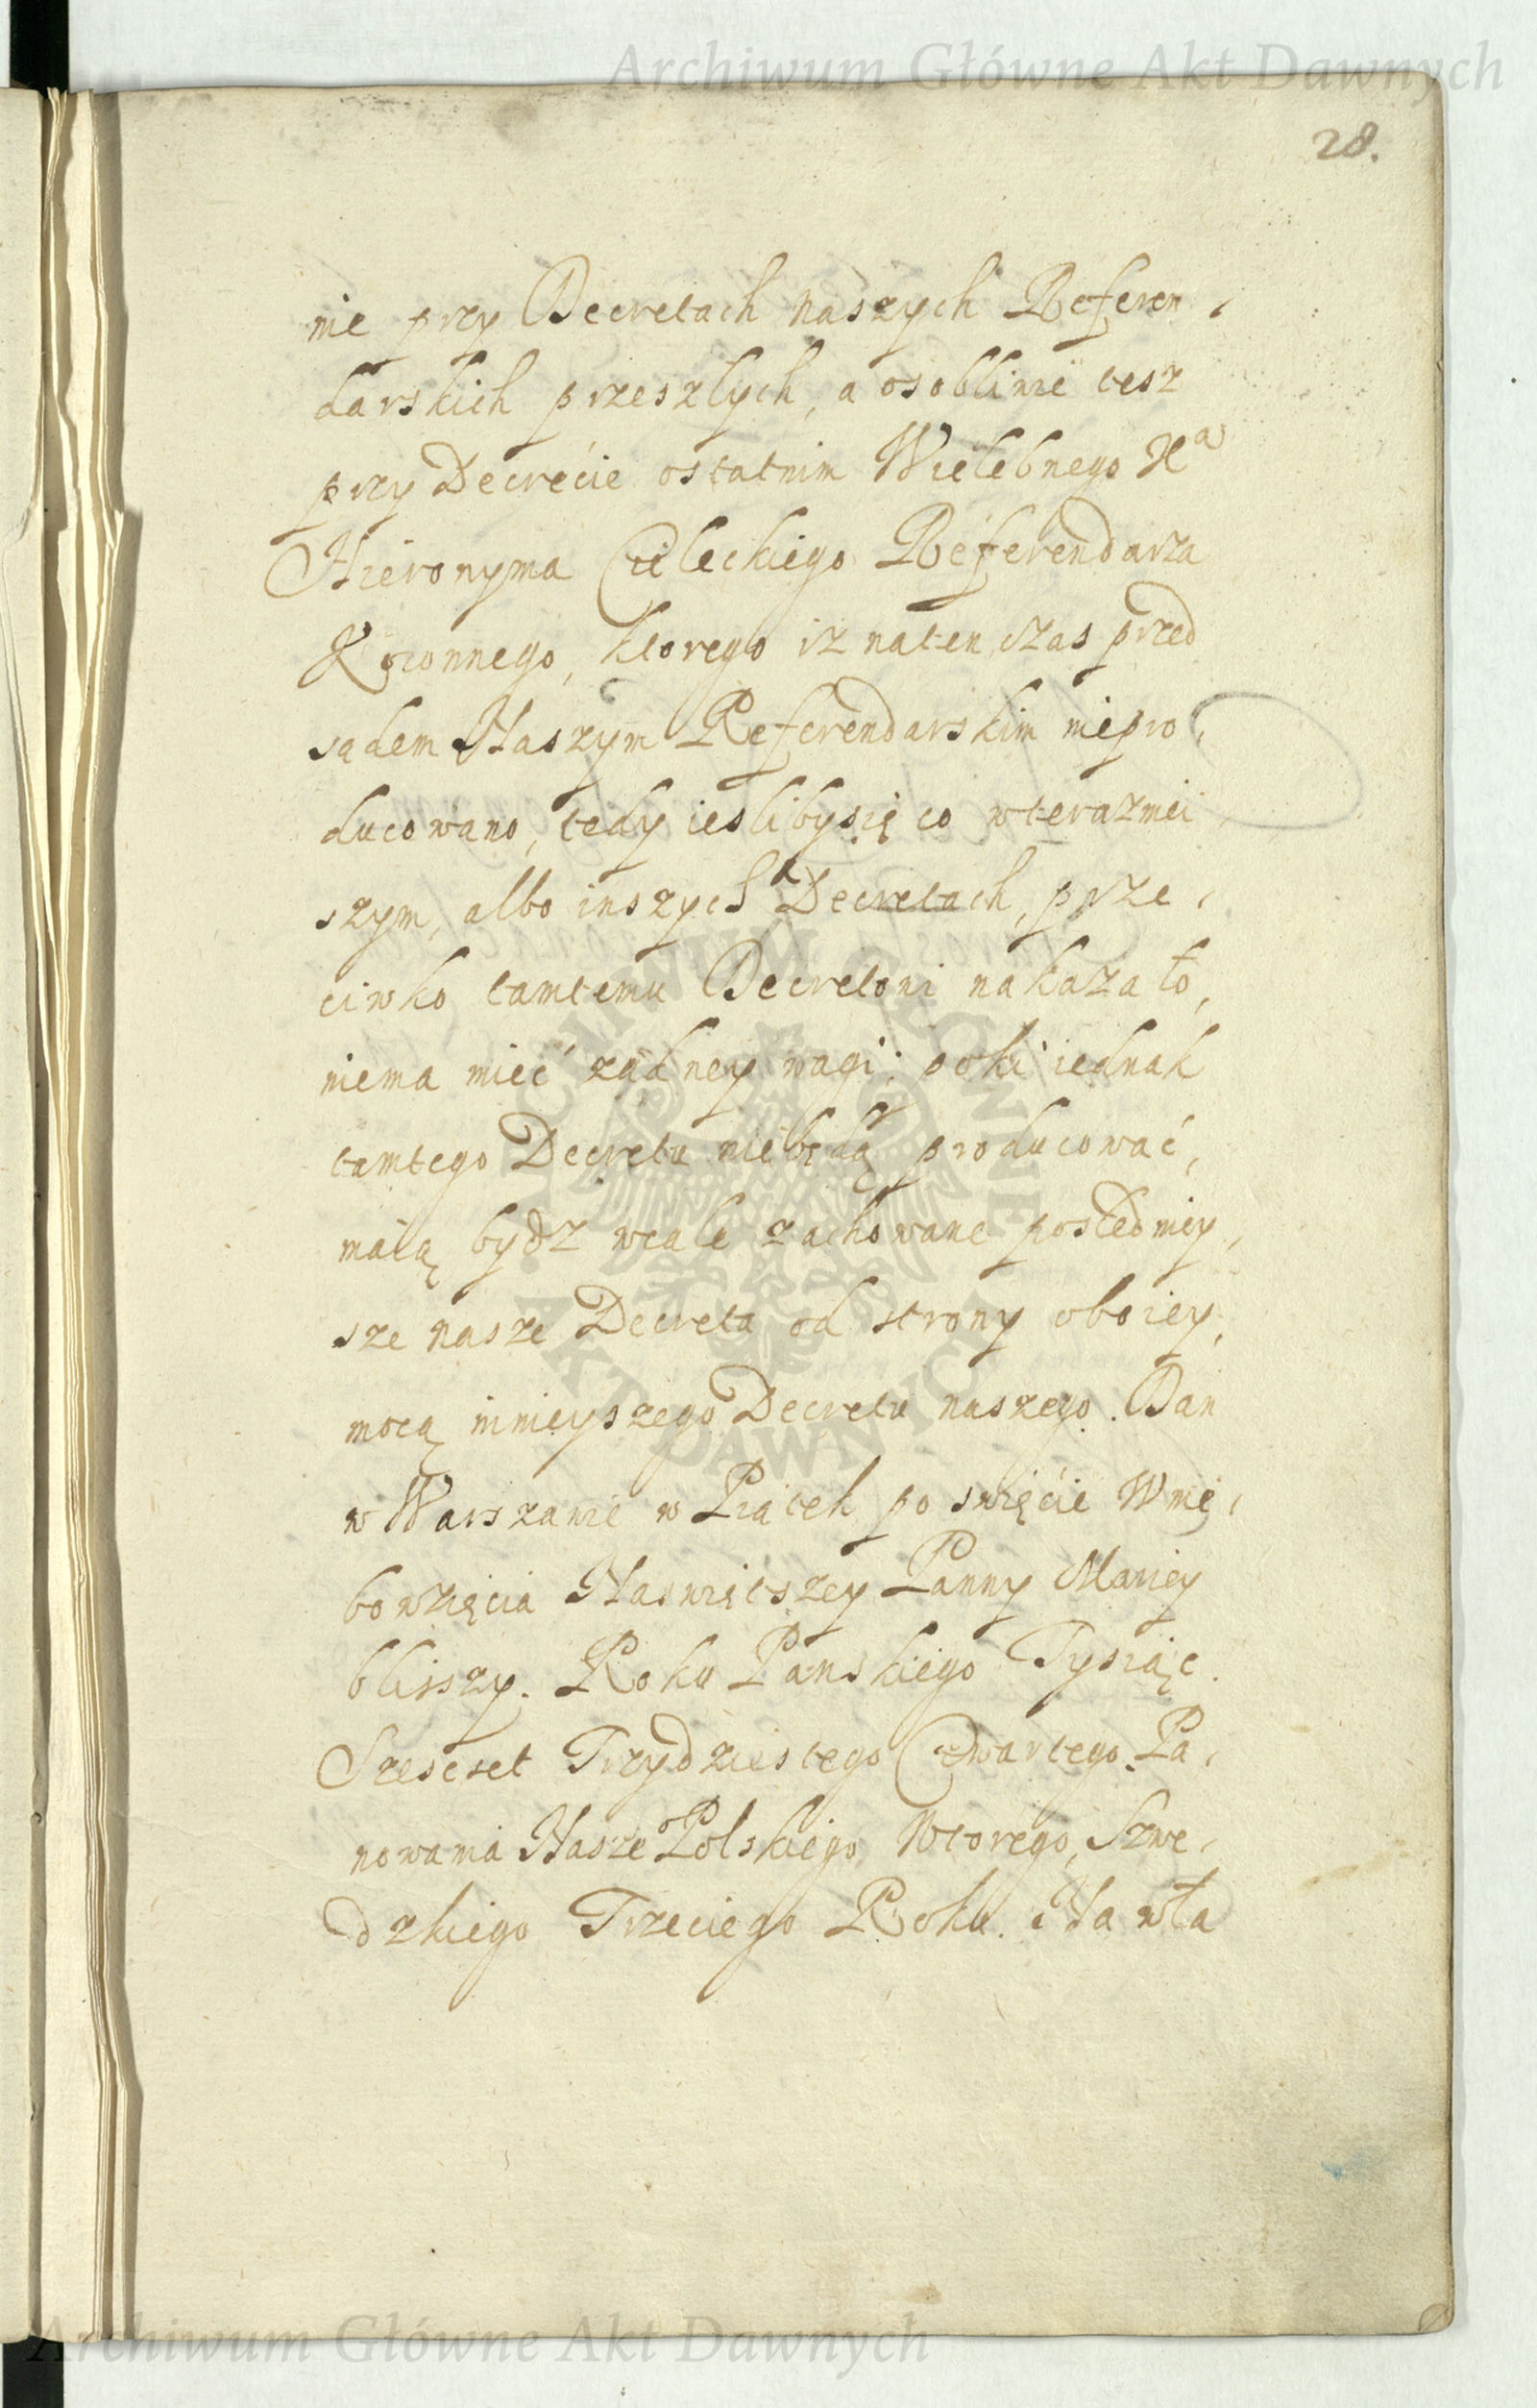 Archiwum Główne Akt Dawnych
28.
nie przy Decretach naszych Referen,
darskich przeszlych, a osobliwie tesz
przy Decrećie ostatnim Wielebnego Xa
Hieronyma Cieleckiego Referendarza
Koronnego, ktorego iz naten czas przed
sądem Naszym Referendarskim niepro,
ducowano, tedy ieslibysię co wteraznei
szym, albo inszych Decretach, prze,
ciwko tamtemu Decretowi nakazało,
niema mieć zadney wagi; poki iednak
tamtego Decretu niebędą producować,
maią bydz wcale zachowane posledniey,
sze nasze Decreta od strony oboiey,
mocą ninieyszego Decretu naszego. Dan
w Warszawie w Piątek po swięćie Wnie,
bowzięcia Naswiętszey Panny Mariey
blisszy. Roku Panskiego Tysiąc
Szescset Trzydziestego Czwartego. Pa,
nowania Nasze° Polskiego Wtorego, Szwe,
dzkiego Trzeciego Roku. Na wła
ARCHIWUM GŁÓWNE AKT DAWNYCH
Archiwum Główne Akt Dawnych